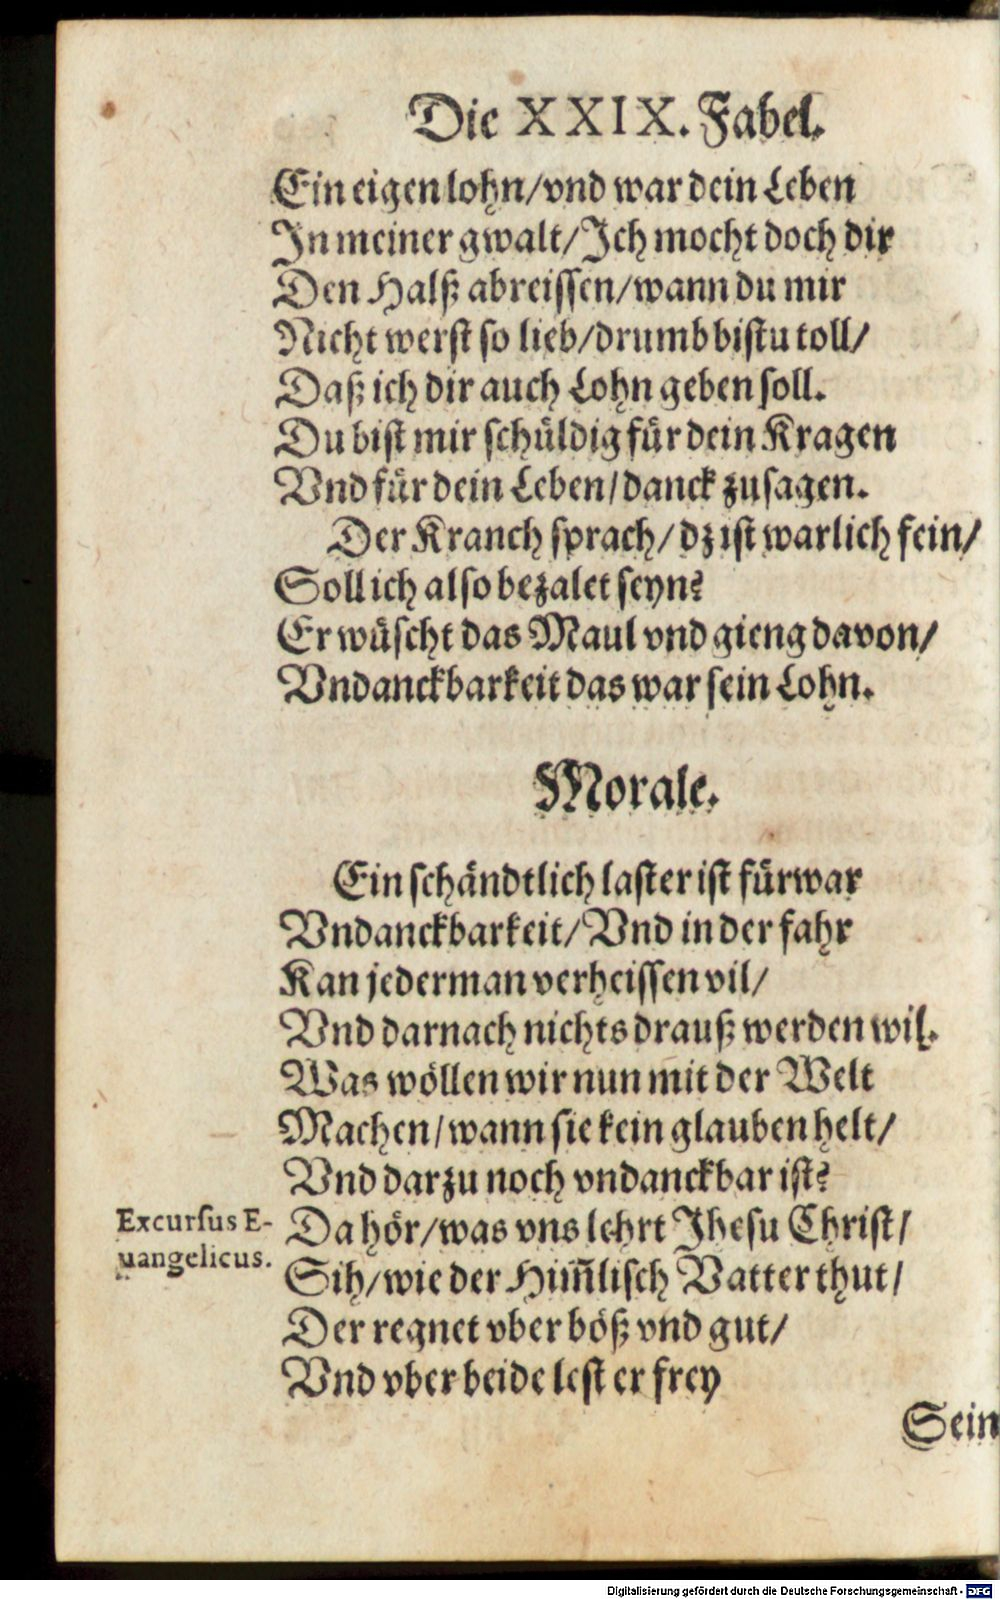 Die XXIX. Fabel.
Ein eigen lohn/vnd war dein Leben
In meiner gwalt/Ich mocht doch dir
Den Halß abreissen/wann du mir
Nicht werst so lieb/drumb bistu toll/
Daß ich dir auch Lohn geben soll.
Du bist mir schüldig für dein Kragen
Vnd für dein Leben/danck zusagen.
Der Kranch sprach/dz ist warlich fein/
Soll ich also bezalet seyn?
Er wüscht das Maul vnd gieng davon/
Vndanckbarkeit das war sein Lohn.
Morale.
Ein schändtlich laster ist fürwar
Vndanckbarkeit/Vnd in der fahr
Kan jederman verheissen vil/
Vnd darnach nichts drauß werden wil.
Was wöllen wir nun mit der Welt
Machen/wann sie kein glauben helt/
Vnd darzu noch vndanckbar ist?
Excursus E-
uangelicus.
Da hör/was vns lehrt Jhesu Christ/
Sih/wie der Him̃lisch Vatter thut/
Der regnet vber böß vnd gut/
Vnd vber beide lest er frey
Sein
Digitalisierung gefördert durch die Deutsche Forschungsgemeinschaft - DFG